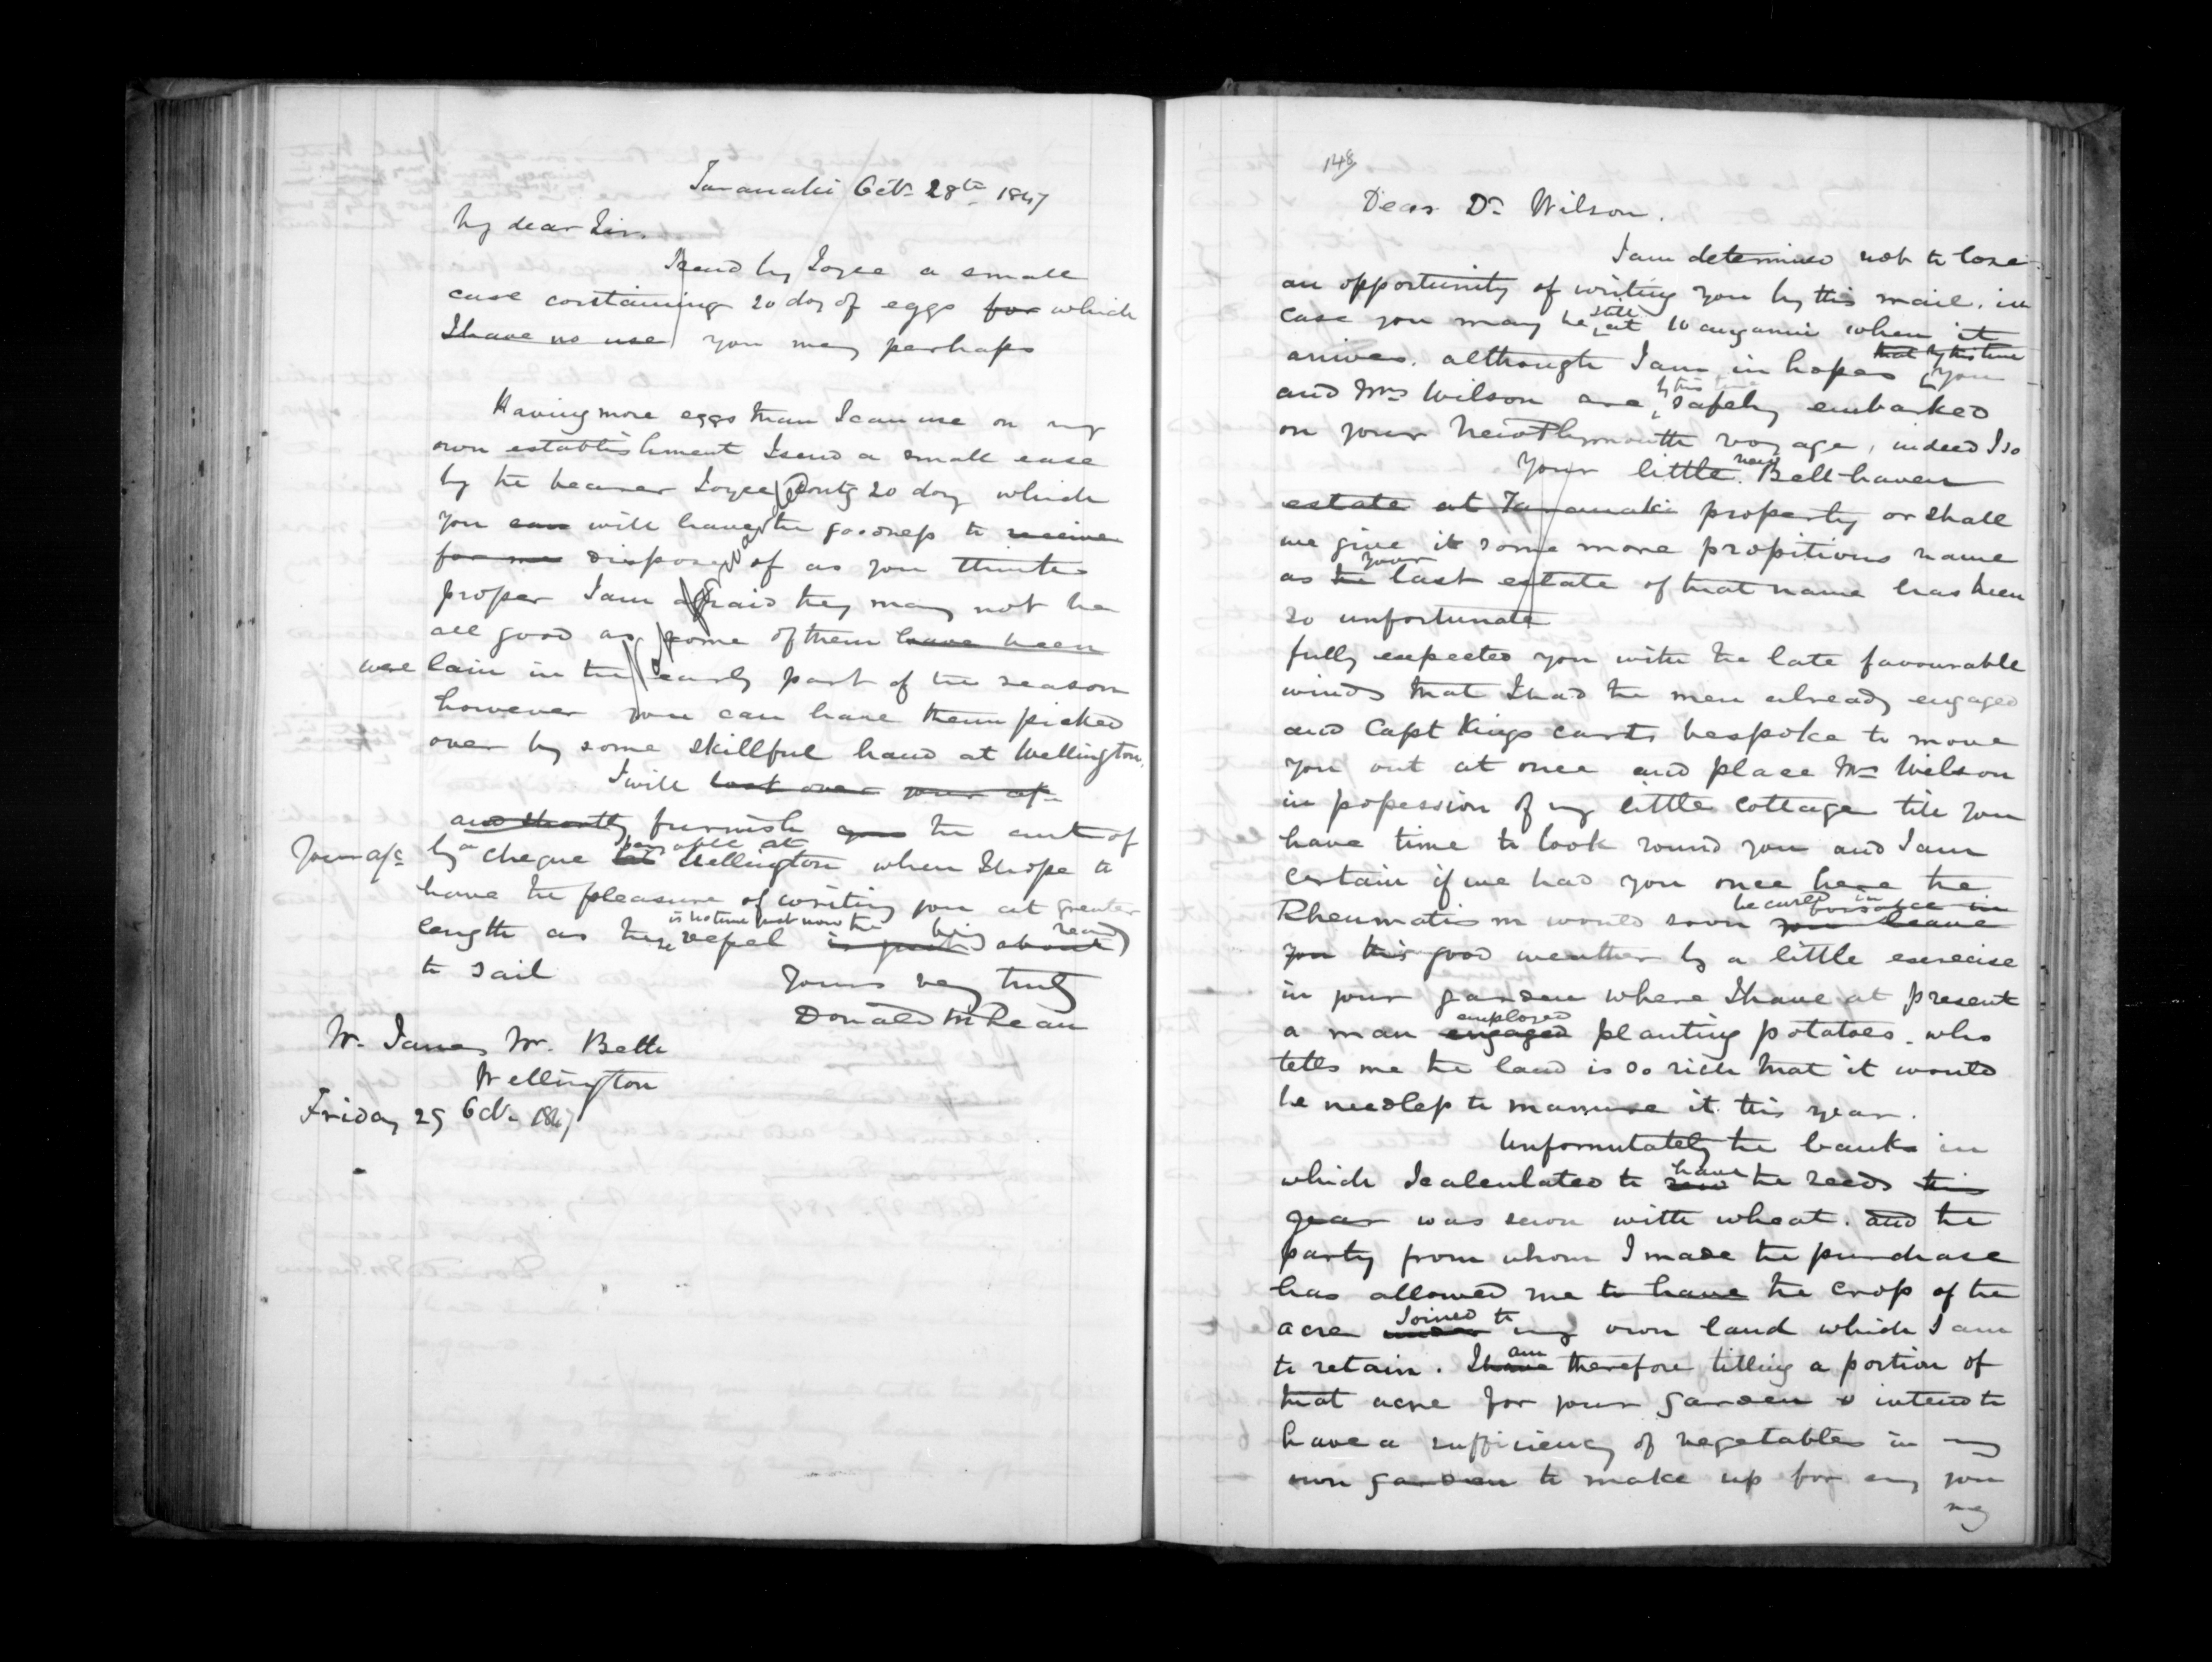 Taranaki Octr. 28th 1847
My dear Sir.
I send by Joyce a small
case containing 20 doz of eggs for which
I have no use you may perhaps
Having more eggs than I can use on my
own establishment I send a small case
by the bearer Joyce contg 20 doz which
you can will have the goodness to receive
for me dispose of as you think
proper I am afraid they may not be
all good as some of them have been
were lain in the early part of the season
however you can have them picked
over by some skillful hand at Wellington.
I will look over your a/c
and shortly furnish you the amt of
Your a/c by a cheque payable at Wellington when I hope to
have the pleasure of writing you at greater
length as there is no time just now the vessel is just being about ready
to sail
Yours very truly
Donald McLean
Mr. James M. Betts
Wellington
Friday 29 Octr. 1847
148
Dear Dr. Wilson.
I am determined not to lose
an opportunity of writing you by this mail, in
case you may be still at Wanganui when it
arrives. although I am in hopes that by this time you
and Mrs Wilson are by this time safely embarked
on your New Plymouth voyage, indeed I so
Your little new Bell haven
estate at Taranaki property or shall
we give it some more propitious name
as the your last estate of that name has been
so unfortunate
fully expected you with the late favourable
winds that I had the men already engaged
and Capt Kings carts bespoke to move
you out at once and place Mrs Wilson
in possession of my little cottage till you
have time to look round you and I am
certain if we had you once here the
Rheumatism would soon you leave be cured in
you this good weather by a little exercise
in your garden where I have at present
a man engaged employed planting potatoes. who
tells me the land is so rich that it would
be needless to manure it this year.
Unfornutately the banks in
which I calculated to sow have the seeds this
year was sown with wheat. and the
party from whom I made the purchase
has allowed me to have the crop of the
acre under Joined to my own land which I am
to retain. I have am therefore tilling a portion of
that acre for your garden & intend to
have a sufficiency of vegetables in my
own garden to make up for any you
may